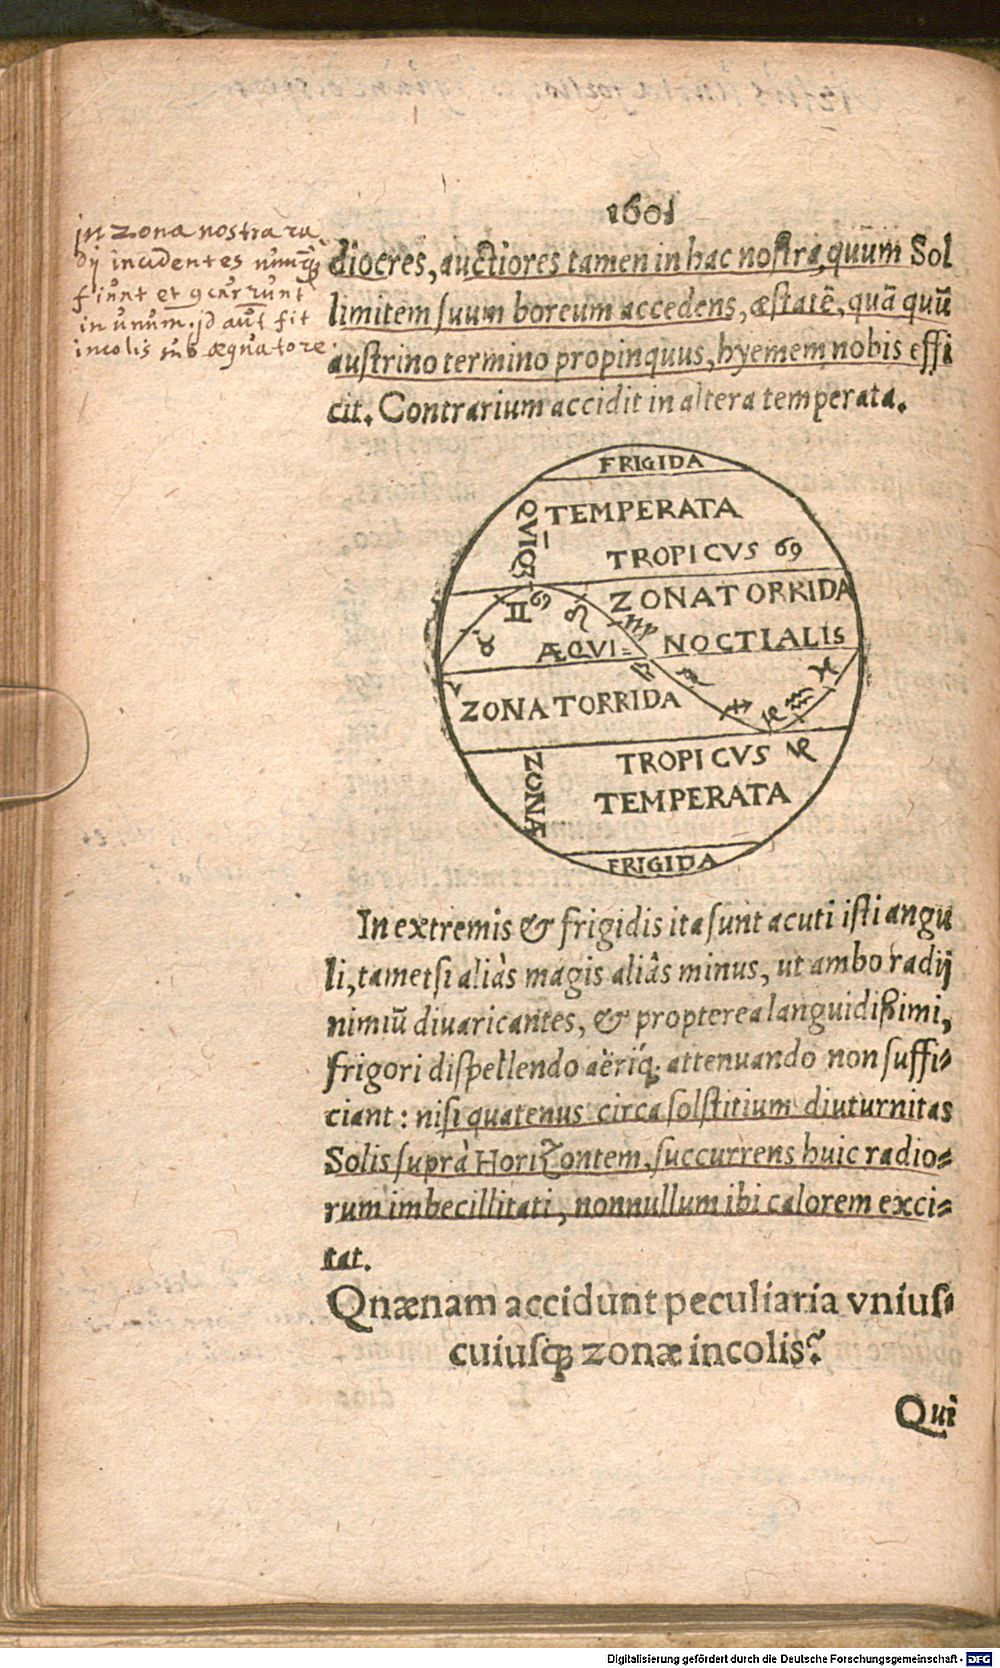 1601
in zona nostra ra
dij incidentes nunq̃
fiunt et concurrunt
in unum. id aut̃ fit
incolis sub æquatore.
diocres, auctiores tamen in hac nostra, quum Sol
limitem suum boreum accedens, æstatẽ, quã quũ
austrino termino propinquus, hyemem nobis effi
cit. Contrarium accidit in altera temperata.
FRIGIDA
TEMPERATA
TROPICVS ♋
ZONA TORRIDA
ÆQVI= NOCTIALIS
ZONA TORRIDA
TROPICVS ♑
ZONÆ
TEMPERATA
FRIGIDA
In extremis & frigidis ita sunt acuti isti angu
li, tametsi aliàs magis aliâs minus, ut ambo radij
nimiũ diuaricantes, & propterea languidißimi,
frigori dispellendo aëriq́; attenuando non suffi=
ciant: nisi quatenus circa solstitium diuturnitas
Solis suprà Horizontem, succurrens huic radio=
rum imbecillitati, nonnullum ibi calorem exci=
tat.
Qnænam accidunt peculiaria vnius=
cuiusq; zonæ incolis?
Qui
Digitalisierung gefördert durch die Deutsche Forschungsgemeinschaft - DFG